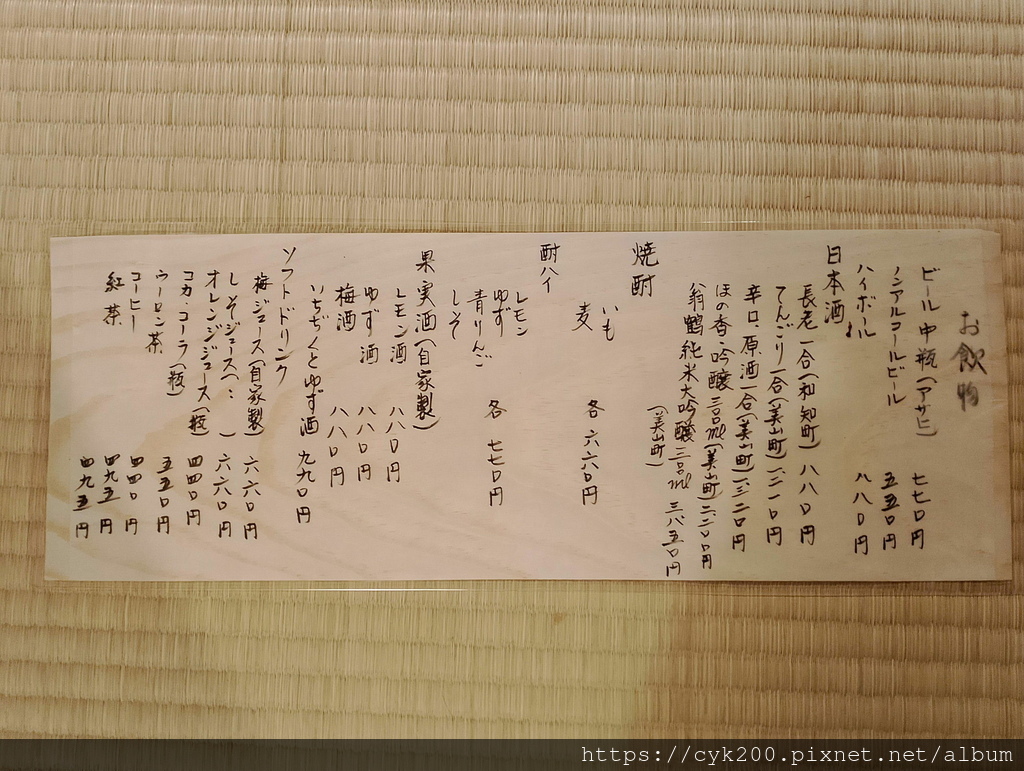 お飲物
ビール中瓶(アサヒ) 七七〇円
ノンアルコールビール 五五〇円
ハイボール 八八〇円
日本酒
長老 一合(和知町) 八八〇円
てんごり 一合(美山町) 一、二一〇円
辛口、原酒 一合(美山町) 一、三二〇円
ほの香・吟醸 三〇〇ml(美山町) 二、二〇〇円
翁鶴 純米大吟醸 三〇〇ml 三、八五〇円
(美山町)
焼酎
いも
麦
各 六六〇円
酎ハイ
レモン
ゆず
青りんご
しそ
各 七七〇円
果実酒(自家製)
レモン酒 八八〇円
ゆず酒 八八〇円
梅酒 八八〇円
いちぢくとゆず酒 九九〇円
ソフトドリンク
梅ジュース(自家製) 六六〇円
しそジュース( 〃 ) 六六〇円
オレンジジュース(瓶) 四四〇円
コカ・コーラ(瓶) 五五〇円
ウーロン茶 四四〇円
コーヒー 四九五円
紅茶 四九五円
https://cyk200.pixnet.net/album